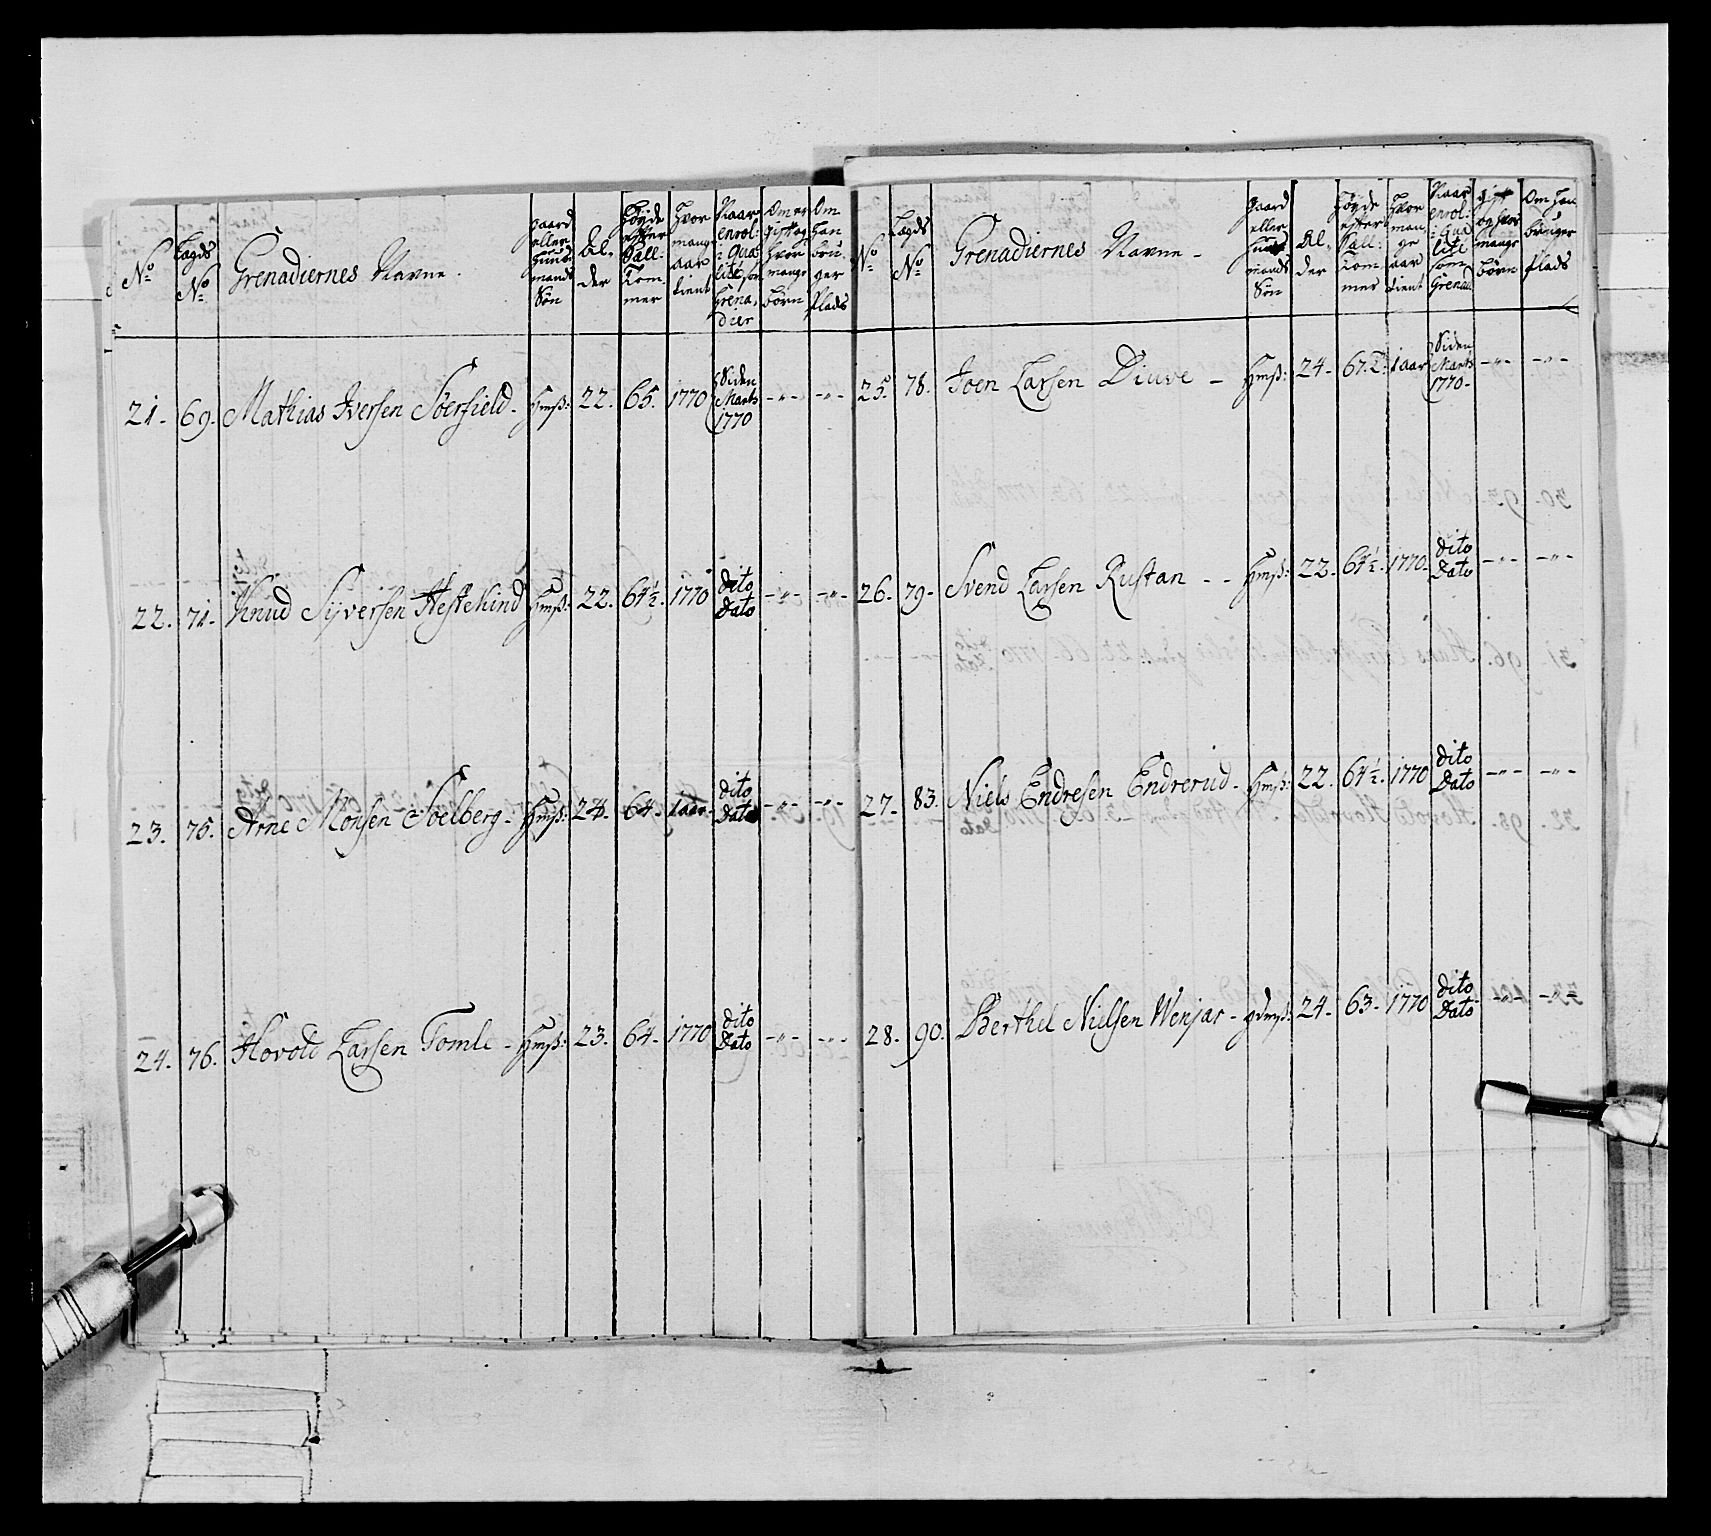 No
Lægds No
Grenadiernes Navne.
Gaard eller Huusmands Søn
Alder
Høyde efter Sall: Tommer
Hvor mange aar tient
Naar enrol: Qualite som Grenadier
Om er gift og hvor mange børn
Om han bruuger Plads
21. 69. Mathias Iversen Söerfield. Hmß: 22. 65. 1770 Siden Marts 1770 -"- -"-
22. 71. Knud Syversen Hestekind Hmß: 22. 64½. 1770 dito Dato -"- -"-
23. 75. Arne Monsen Soelberg. Hmß: 24. 64. 1 aar. dito Dato -"- -"-
24. 76. Hovold Larsen Tomle. Hmß: 23. 64. 1770 dito Dato -"- -"-
No
Lægds No
Grenadiernes Navne.
Gaard eller Huusmands Søn
Alder
Høyde efter Sall: Tommer
Hvor mange aar tient
Naar enrol: Qualite som Grenad:
gift og hvor mange börn
Om han bruuger Plads
25. 78. Joen Larsen Diuve - Hmß: 24. 67.½. 1 aar Siden Marts 1770. -"- -"-
26. 79. Svend Larsen Rustan - - Hmß: 22. 64½. 1770. dito Dato -"- -"-
27. 83. Niels Endresen Endrerud. Hmß: 22. 64½. 1770 dito Dato -"- -"-
28. 90. Berthel Nielsen Wenjar - gdmß: 24. 63. 1770 dito Dato -"- -"-